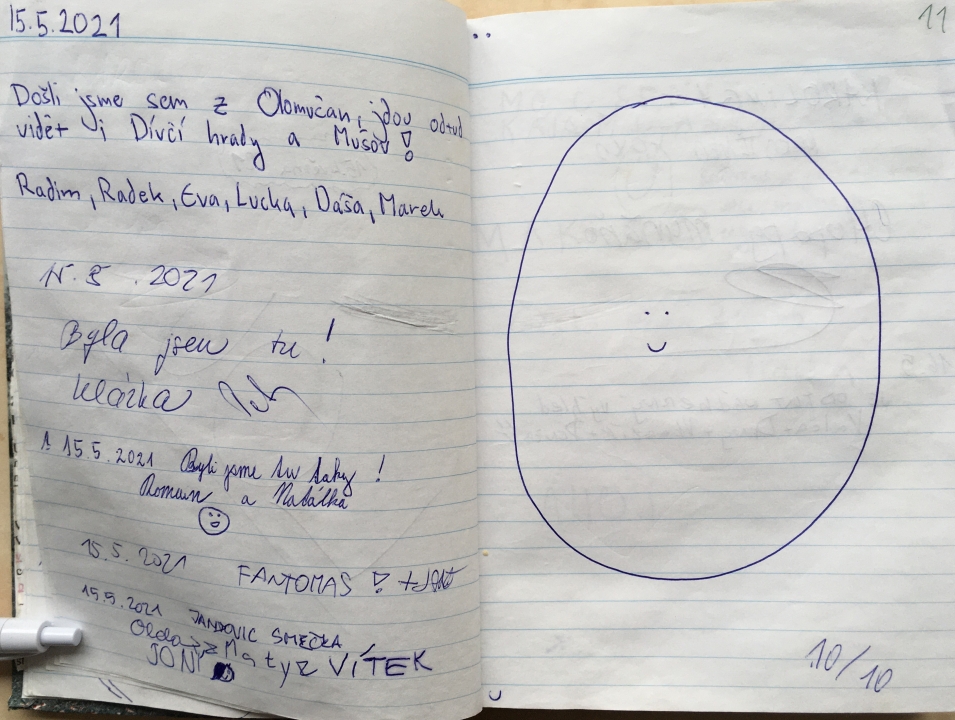 15.5.2021
Došli jsme sem z Olomučan, jdou odtud
vidět i Dívčí hrady a Mušov!
Radim, Radek, Eva, Lucka, Dáša, Marek
15.5.2021
Byla jsem tu!
Klárka
15.5.2021 Byli jsme tu taky!
Roman a Natálka
15.5.2021
FANTOMAS!
15.5.2021
JANDOVIC SMEČKA
Olda Matyz VÍTEK
JONY
11
10/10